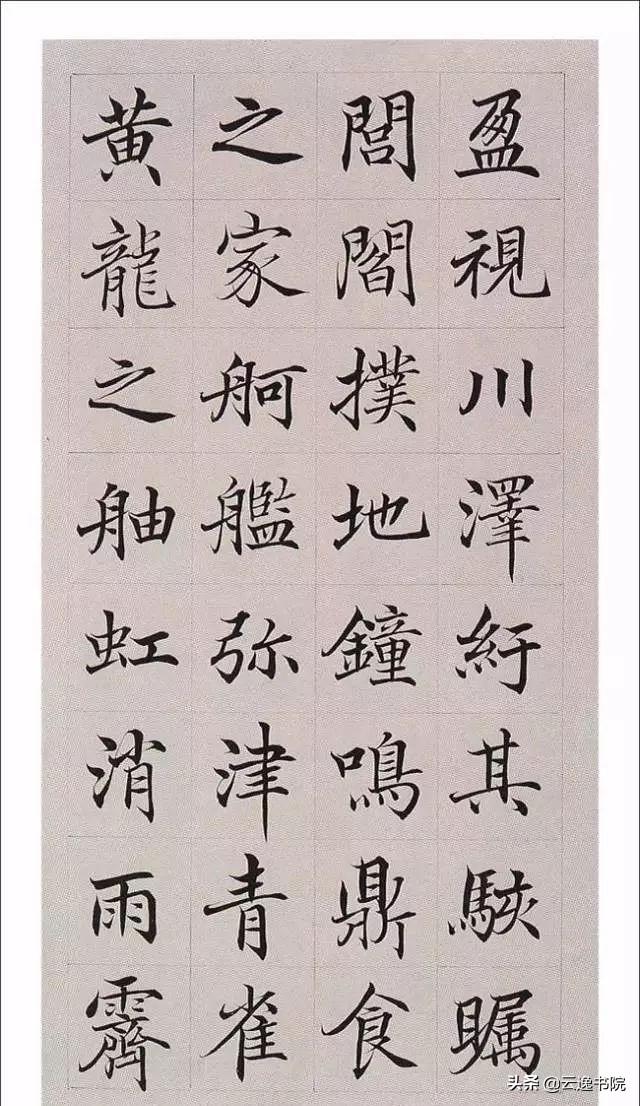 盈視川澤紆其駭矚
閭閻撲地鐘鳴鼎食
之家舸艦弥津青雀
黄龍之舳虹消雨霽
头条 @云逸书院